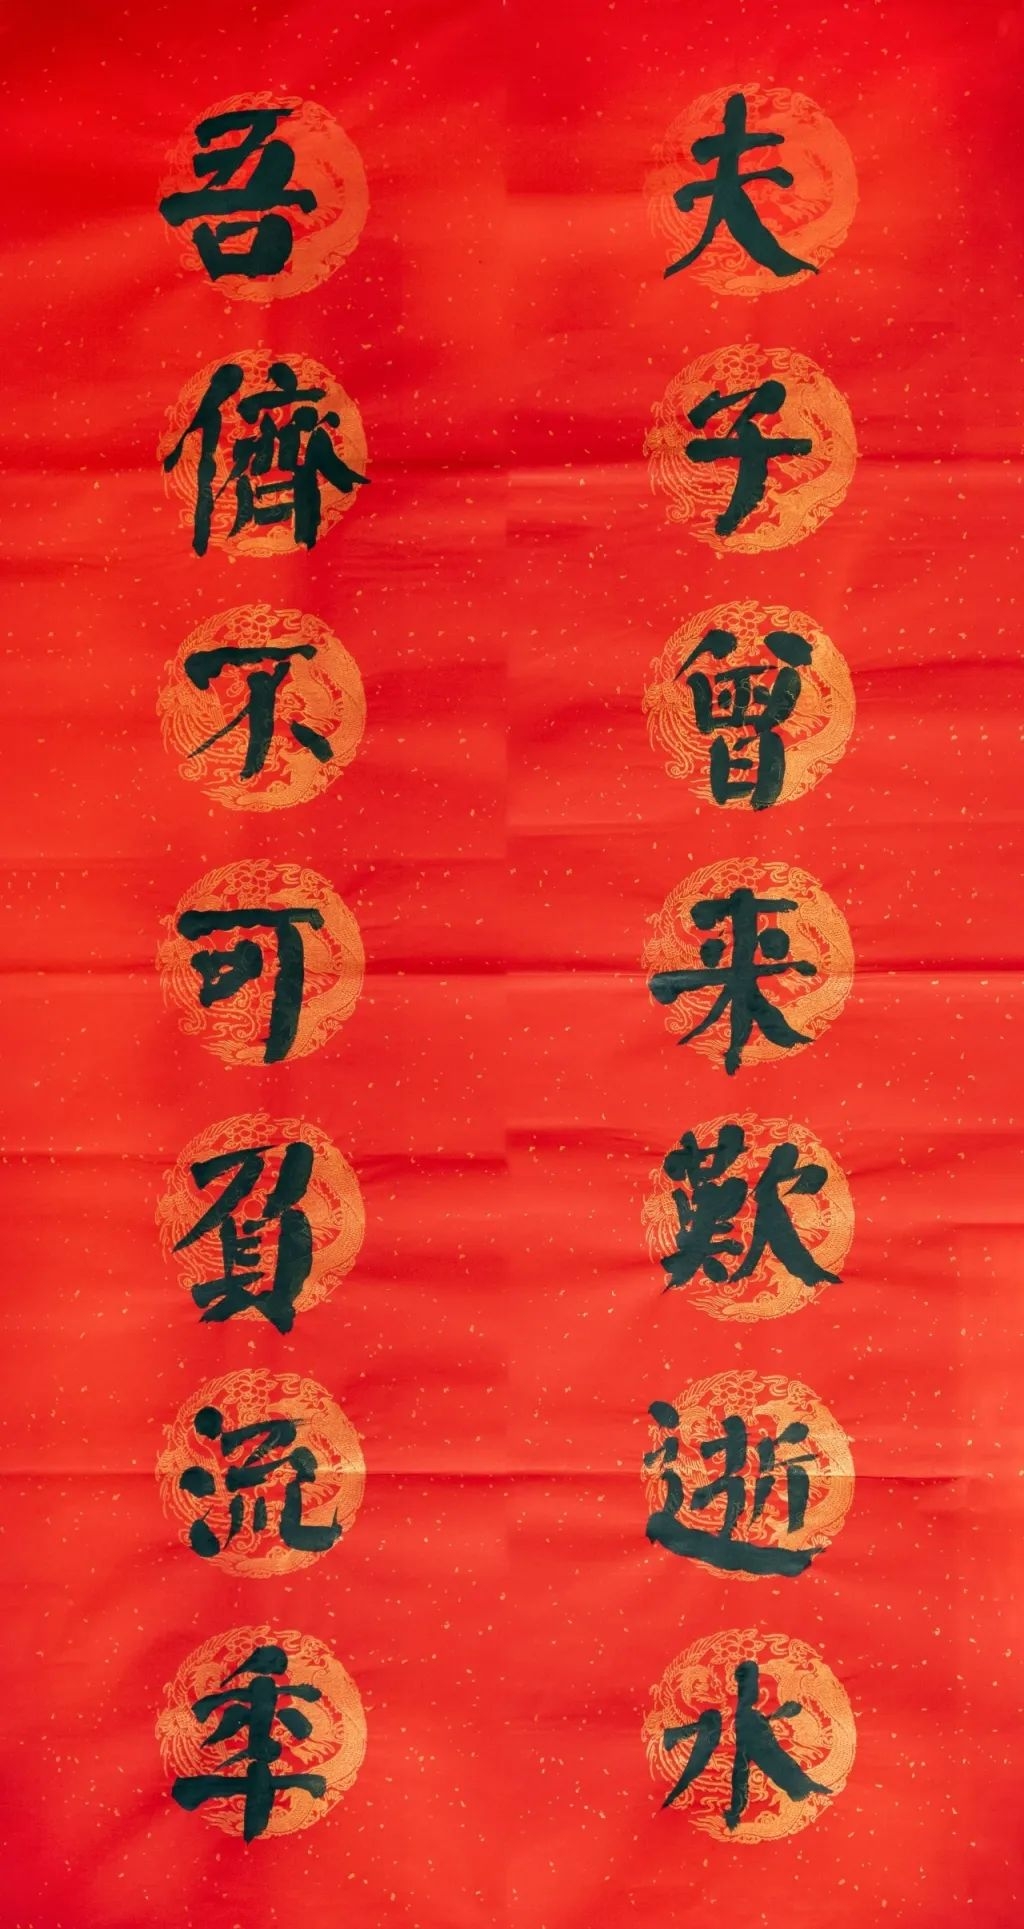 夫子曾来歎逝水
吾儕不可負流年